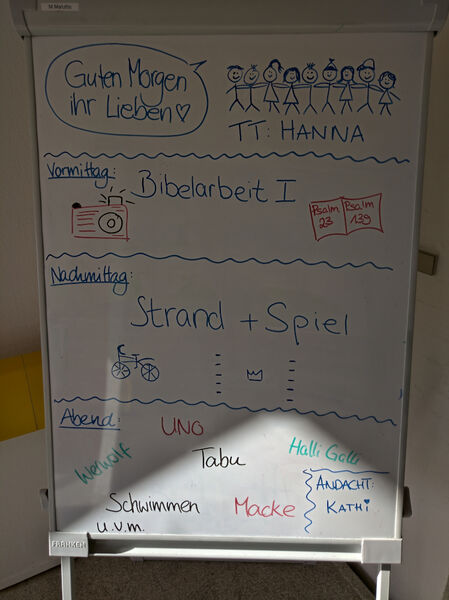 M. Marotto
Guten Morgen
ihr Lieben
TT: HANNA
Vormittag:
Bibelarbeit I
Psalm 23
Psalm 139
Nachmittag:
Strand + Spiel
Abend:
UNO
Werwolf
Tabu
Halli Galli
Schwimmen
u.v.m.
Macke
ANDACHT:
KATHI
FRANKEN